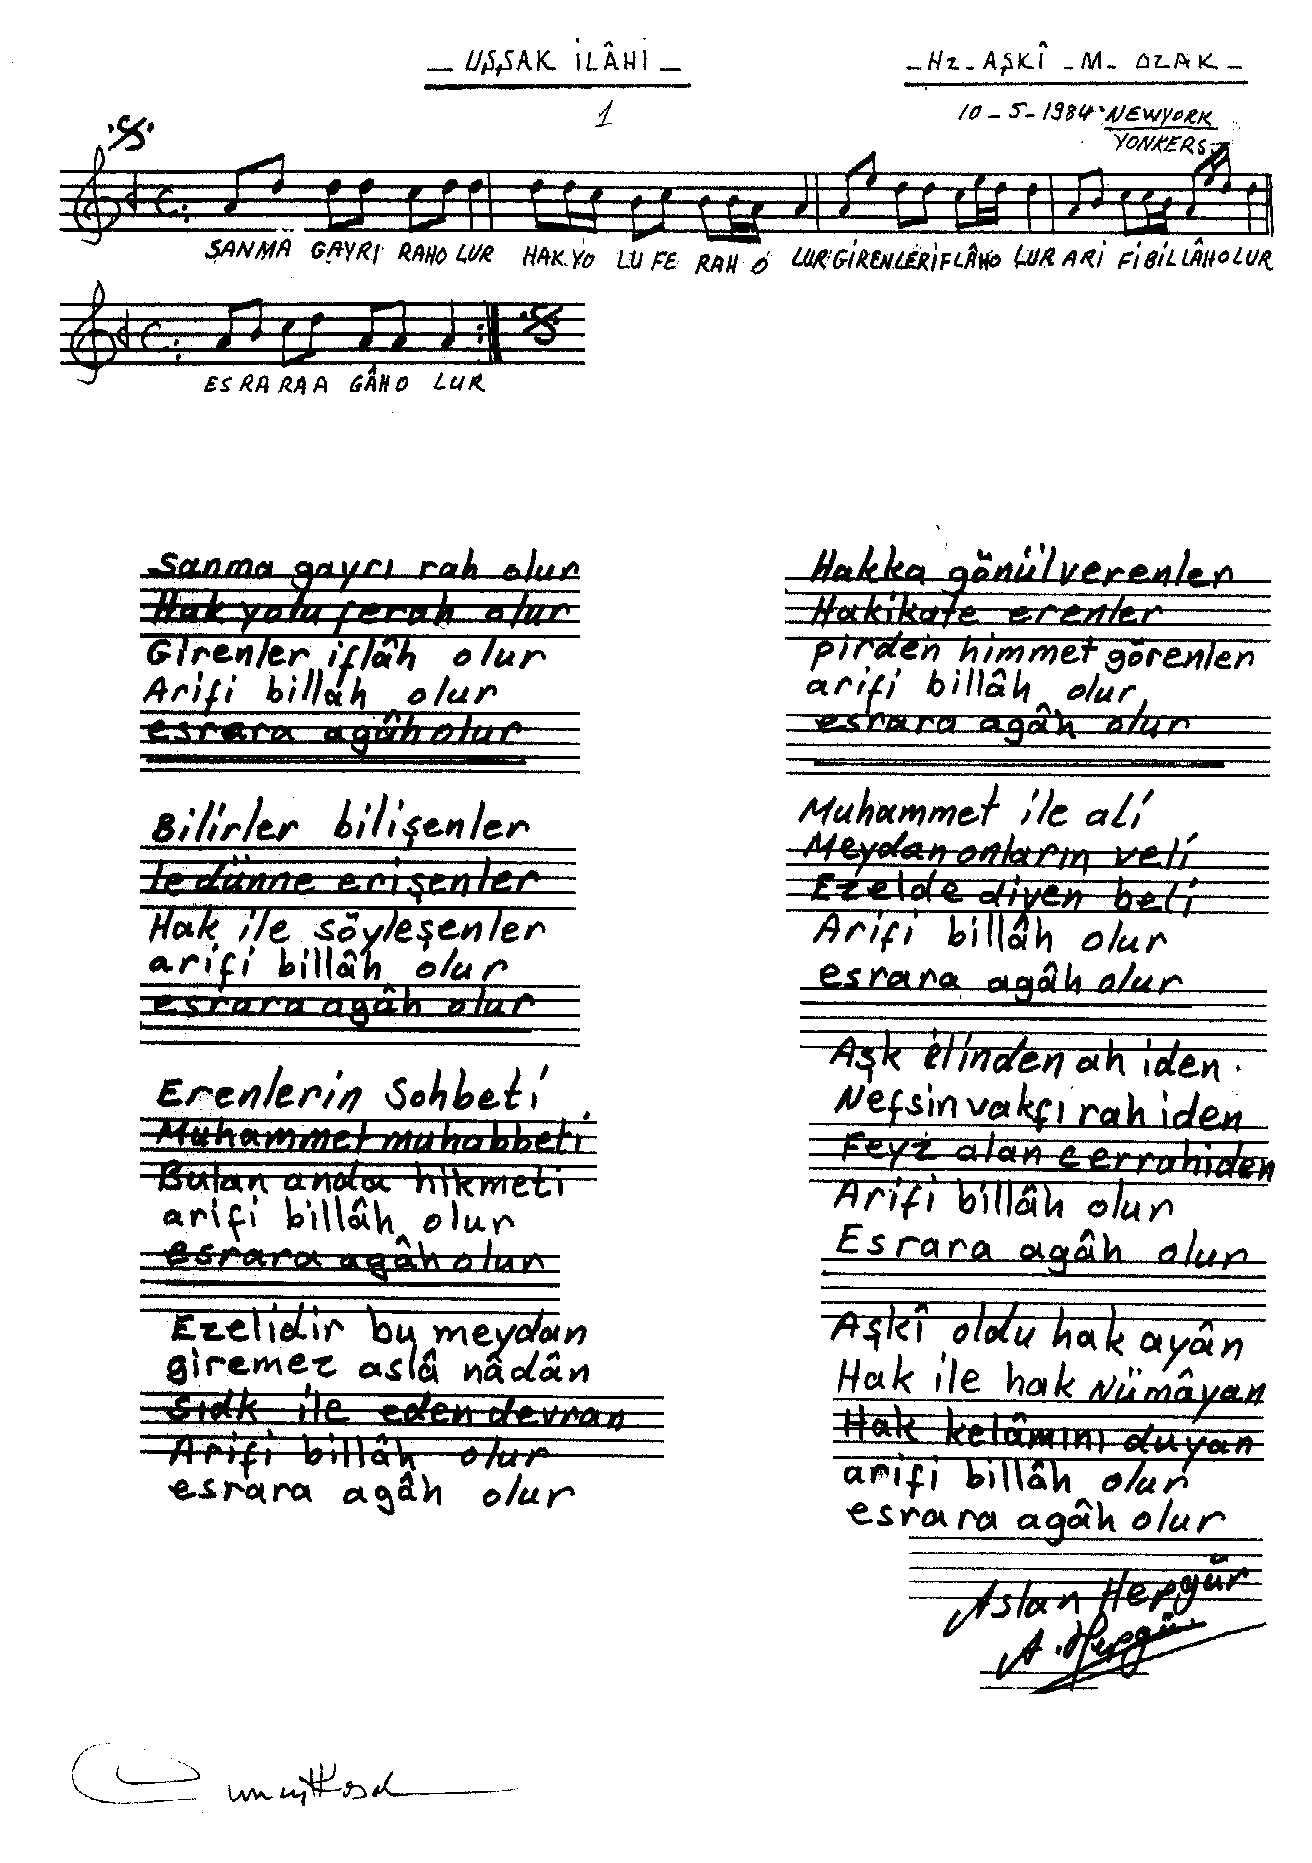 — UŞŞAK İLÂHİ —
- Hz - AŞKÎ - M - OZAK -
1
10 - 5 - 1984 NEWYORK
YONKERS
SANMA GAYRI RAHO LUR HAK YO LU FE RAH O LUR GİRENLERİFLÂHO LUR ARİ FİBİLLÂHOLUR
ES RA RA A GÂHO LUR
Sanma gayrı rah olur
Hak yolu ferah olur
Girenler iflâh olur
Arifi billâh olur
esrara agâh olur
Bilirler bilişenler
ledünne erişenler
Hak ile söyleşenler
arifi billâh olur
esrara agâh olur
Erenlerin Sohbeti
Muhammet muhabbeti
Bulan anda hikmeti
arifi billâh olur
esrara agâh olur
Ezelidir bu meydan
giremez aslâ nâdân
Sıdk ile eden devran
Arifi billâh olur
esrara agâh olur
Hakka gönül verenler
Hakikate erenler
pirden himmet görenler
arifi billâh olur
esrara agâh olur
Muhammet ile ali
Meydan onların veli
Ezelde diyen beli
Arifi billâh olur
esrara agâh olur
Aşk elinden ah iden
Nefsin vakfı rah iden
Feyz alan cerrahiden
Arifi billâh olur
Esrara agâh olur
Aşkî oldu hak ayân
Hak ile hak Nümâyan
Hak kelâmını duyan
arifi billâh olur
esrara agâh olur
Aslan Hepgür
A. Hepgür